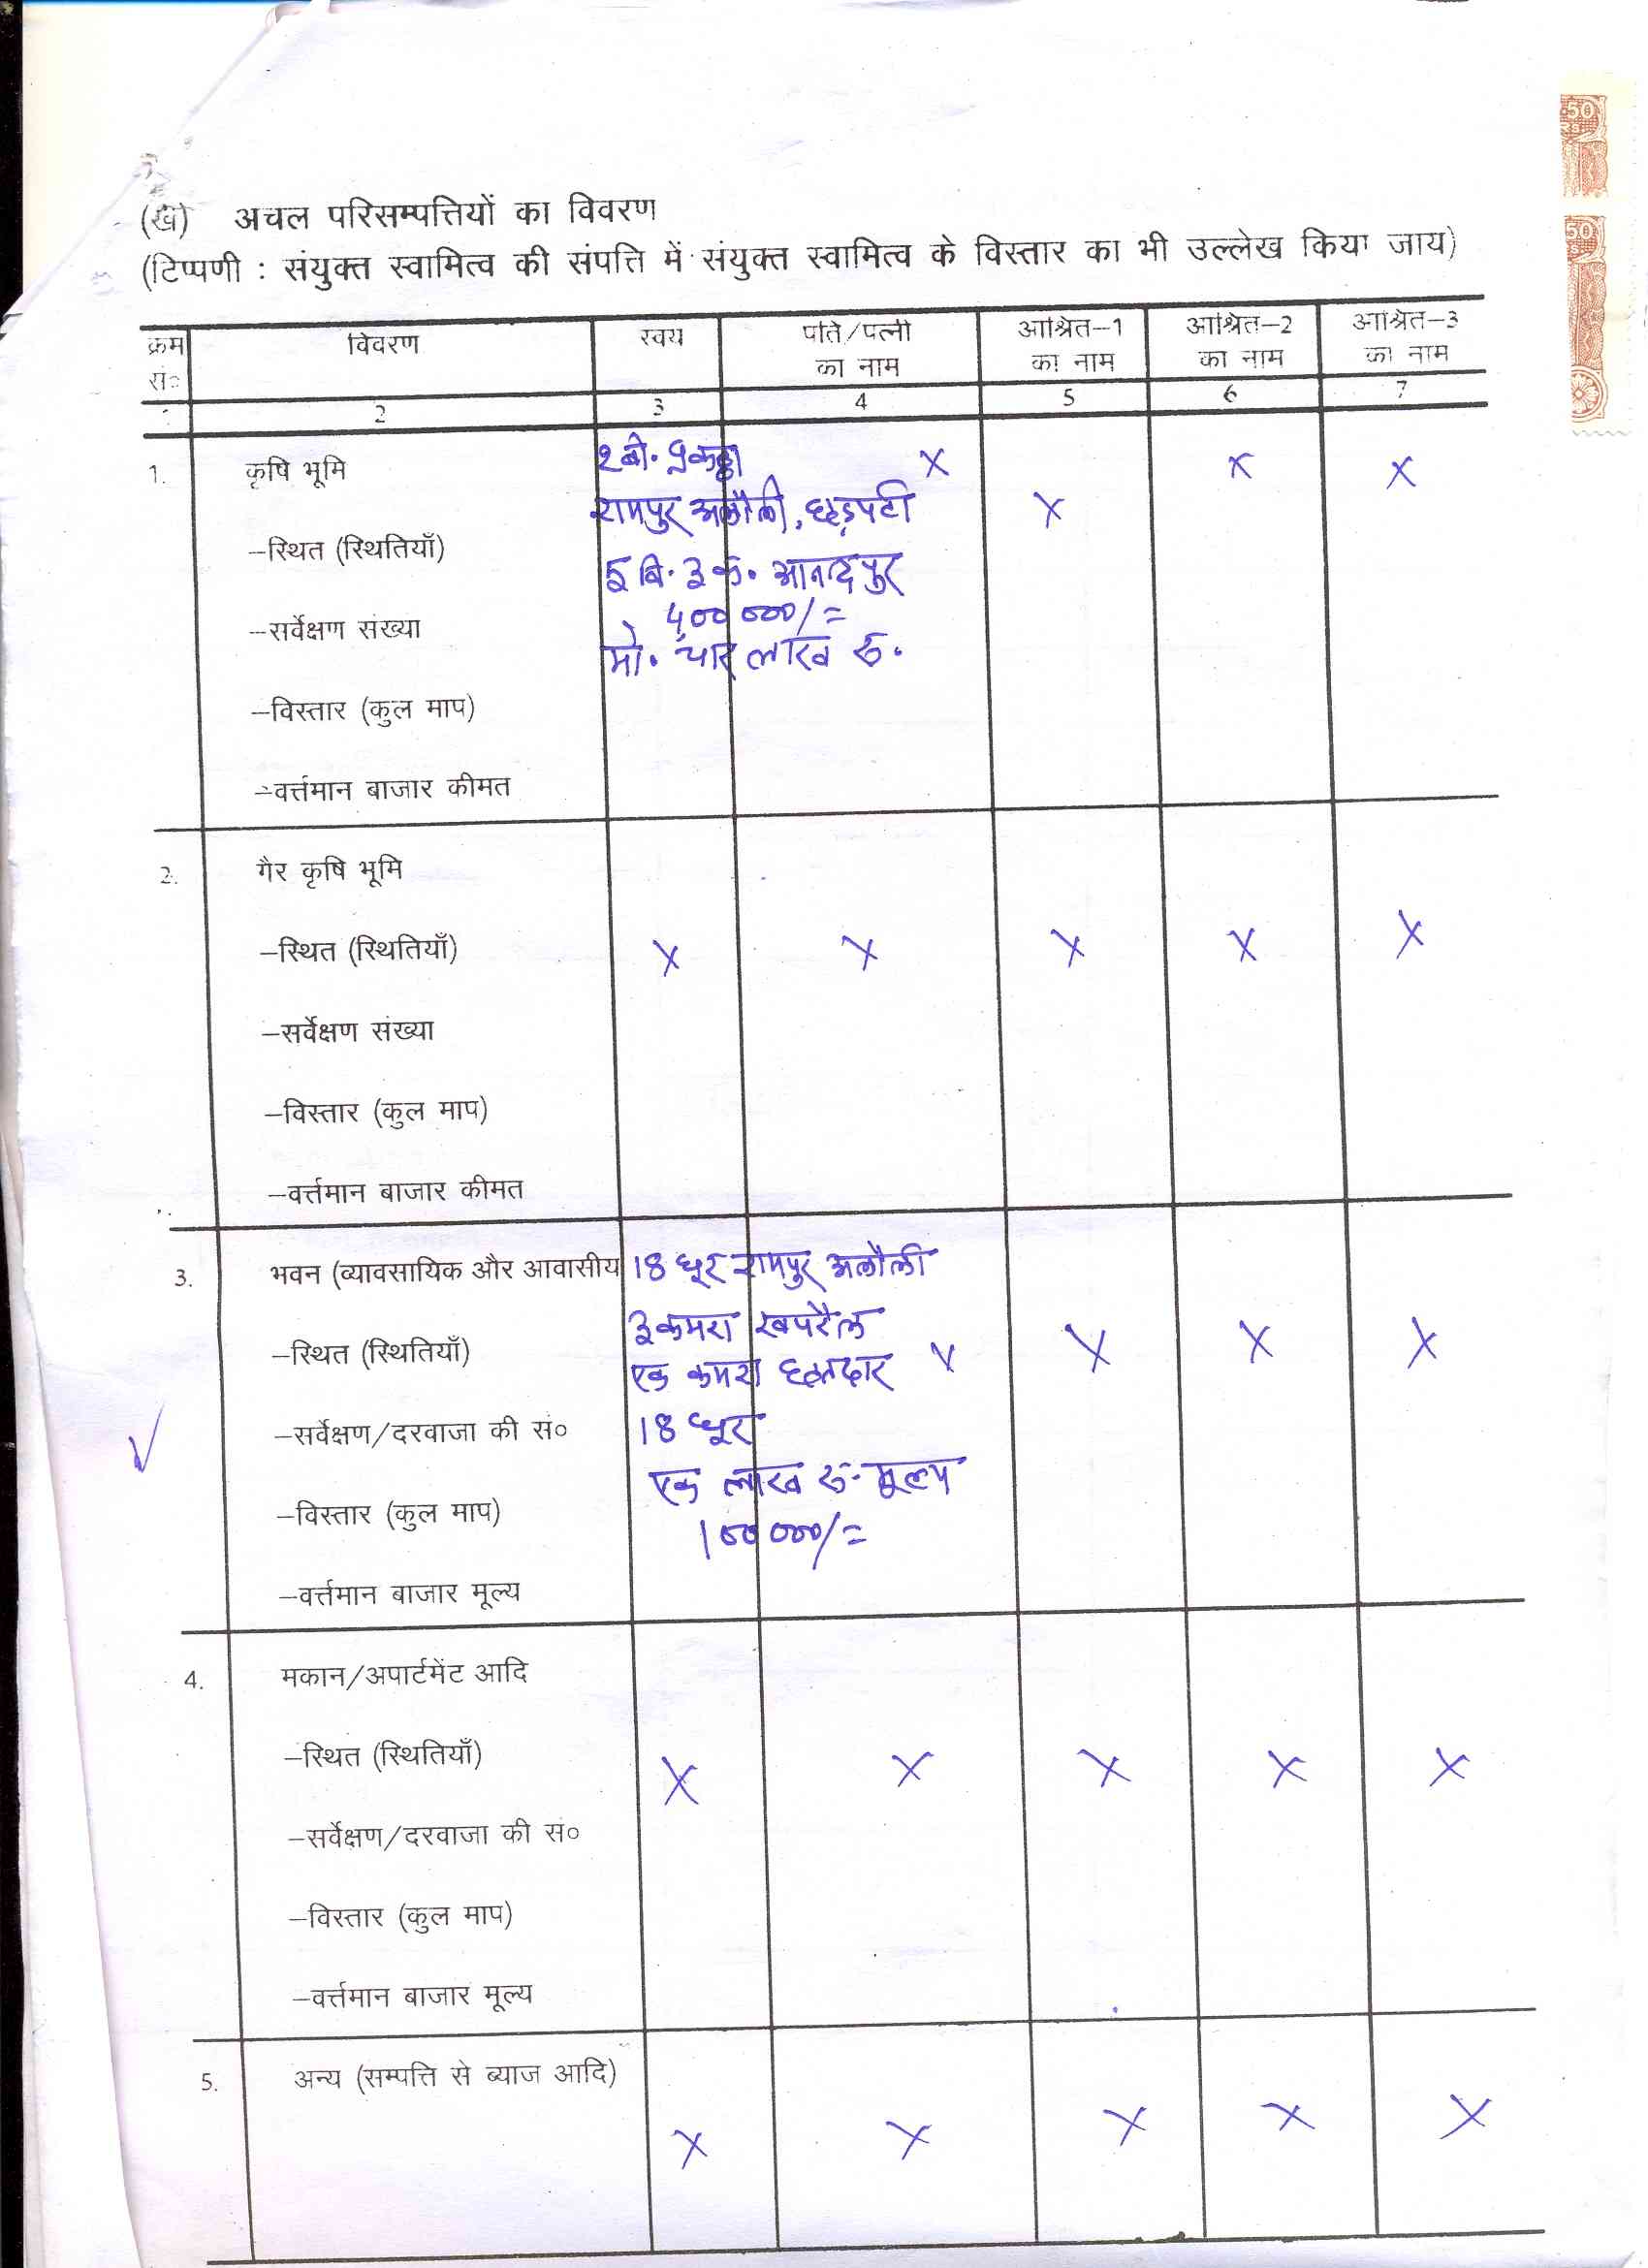 (ख) अचल परिसम्पत्तियों का विवरण
(टिप्पणी : संयुक्त स्वामित्व की संपत्ति में संयुक्त स्वामित्व के विस्तार का भी उल्लेख किया जाय)
क्रम सं० विवरण स्वयं पति/पत्नी का नाम आश्रित–1 का नाम आश्रित–2 का नाम आश्रित–3 का नाम
2 3 4 5 6 7
1. कृषि भूमि २ बी. १ कट्ठा X X X
रामपुर अलौली, X
–स्थित (स्थितियाँ)
5 बि. 3 क. आनन्दपुर
–सर्वेक्षण संख्या 400000/=
मो. चार लाख रु.
–विस्तार (कुल माप)
–वर्त्तमान बाजार कीमत
2. गैर कृषि भूमि
–स्थित (स्थितियाँ) X X X X X
–सर्वेक्षण संख्या
–विस्तार (कुल माप)
–वर्त्तमान बाजार कीमत
3. भवन (व्यावसायिक और आवासीय 18 धूर रामपुर अलौली
3 कमरा खपरैल
–स्थित (स्थितियाँ) एक कमरा छतदार X X X X
–सर्वेक्षण/दरवाजा की सं० 18 धूर
एक लाख रु. मूल्य
–विस्तार (कुल माप) 100000/=
–वर्त्तमान बाजार मूल्य
4. मकान/अपार्टमेंट आदि
–स्थित (स्थितियाँ) X X X X X
–सर्वेक्षण/दरवाजा की सं०
–विस्तार (कुल माप)
–वर्त्तमान बाजार मूल्य
5. अन्य (सम्पत्ति से ब्याज आदि)
X X X X X